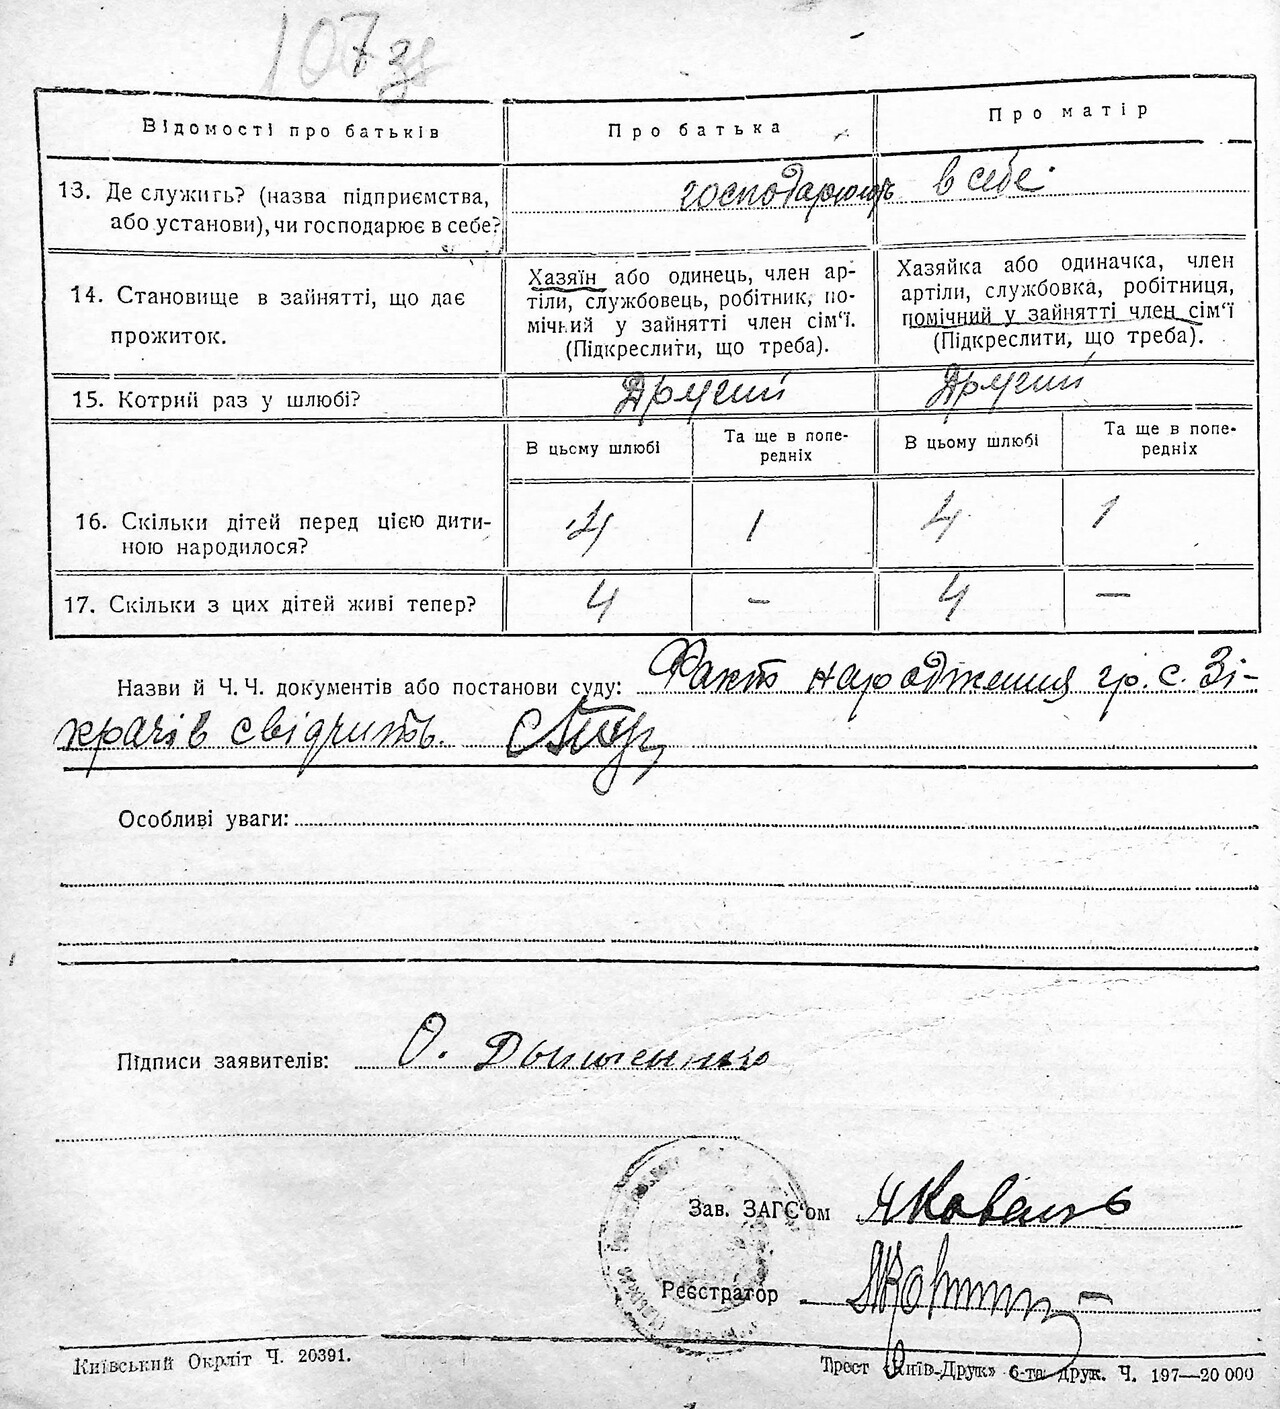 107 зв
Відомості про батьків
Про батька
Про матір
13. Де служить? (назва підприємства,
або установи), чи господарює в себе?
господарюють в себе.
14. Становище в зайнятті, що дає
прожиток.
Хазяїн або одинець, член ар-
тіли, службовець, робітник, по-
мічний у зайнятті член сім'ї.
(Підкреслити, що треба).
Хазяйка або одиначка, член
артіли, службовка, робітниця,
помічний у зайнятті член сім'ї
(Підкреслити, що треба).
15. Котрий раз у шлюбі?
Другий
Другий
В цьому шлюбі
Та ще в попе-
редніх
В цьому шлюбі
Та ще в попе-
редніх
16. Скільки дітей перед цією дити-
ною народилося?
4
1
4
1
17. Скільки з цих дітей живі тепер?
4
—
4
—
Назви й Ч. Ч. документів або постанови суду: Факт народження гр. с. Зі-
храчів свідчить.
Особливі уваги:
Підписи заявителів: О.
Зав. ЗАГС'ом Коваль
Реєстратор
Київський Окрліт Ч. 20391.
Трест «Київ-Друк» 6-та друк. Ч. 197—20 000